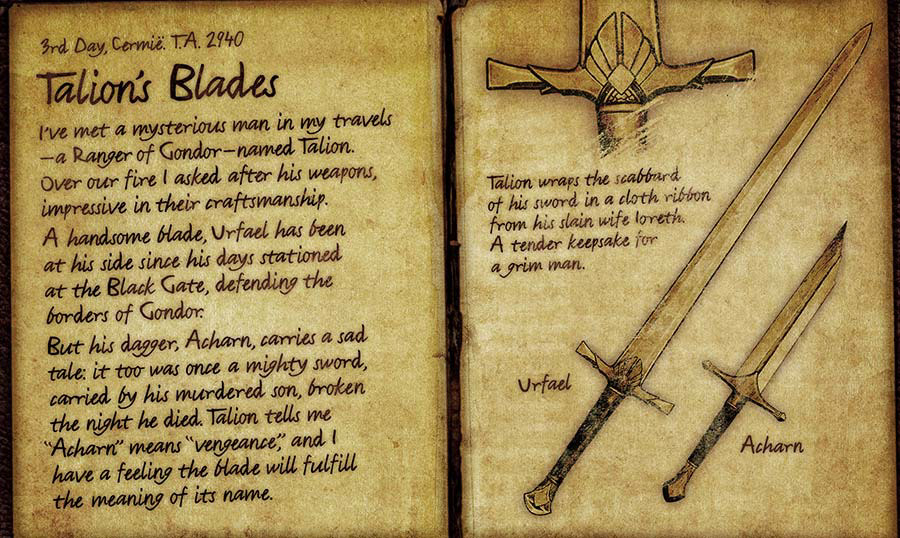 3rd Day, Cermië. T.A. 2940
Talion's Blades
I've met a mysterious man in my travels
—a Ranger of Gondor—named Talion.
Over our fire I asked after his weapons,
impressive in their craftsmanship.
A handsome blade, Urfael has been
at his side since his days stationed
at the Black Gate, defending the
borders of Gondor.
But his dagger, Acharn, carries a sad
tale: it too was once a mighty sword,
carried by his murdered son, broken
the night he died. Talion tells me
"Acharn" means "vengeance," and I
have a feeling the blade will fulfill
the meaning of its name.
Talion wraps the scabbard
of his sword in a cloth ribbon
from his slain wife Ioreth.
A tender keepsake for
a grim man.
Urfael
Acharn